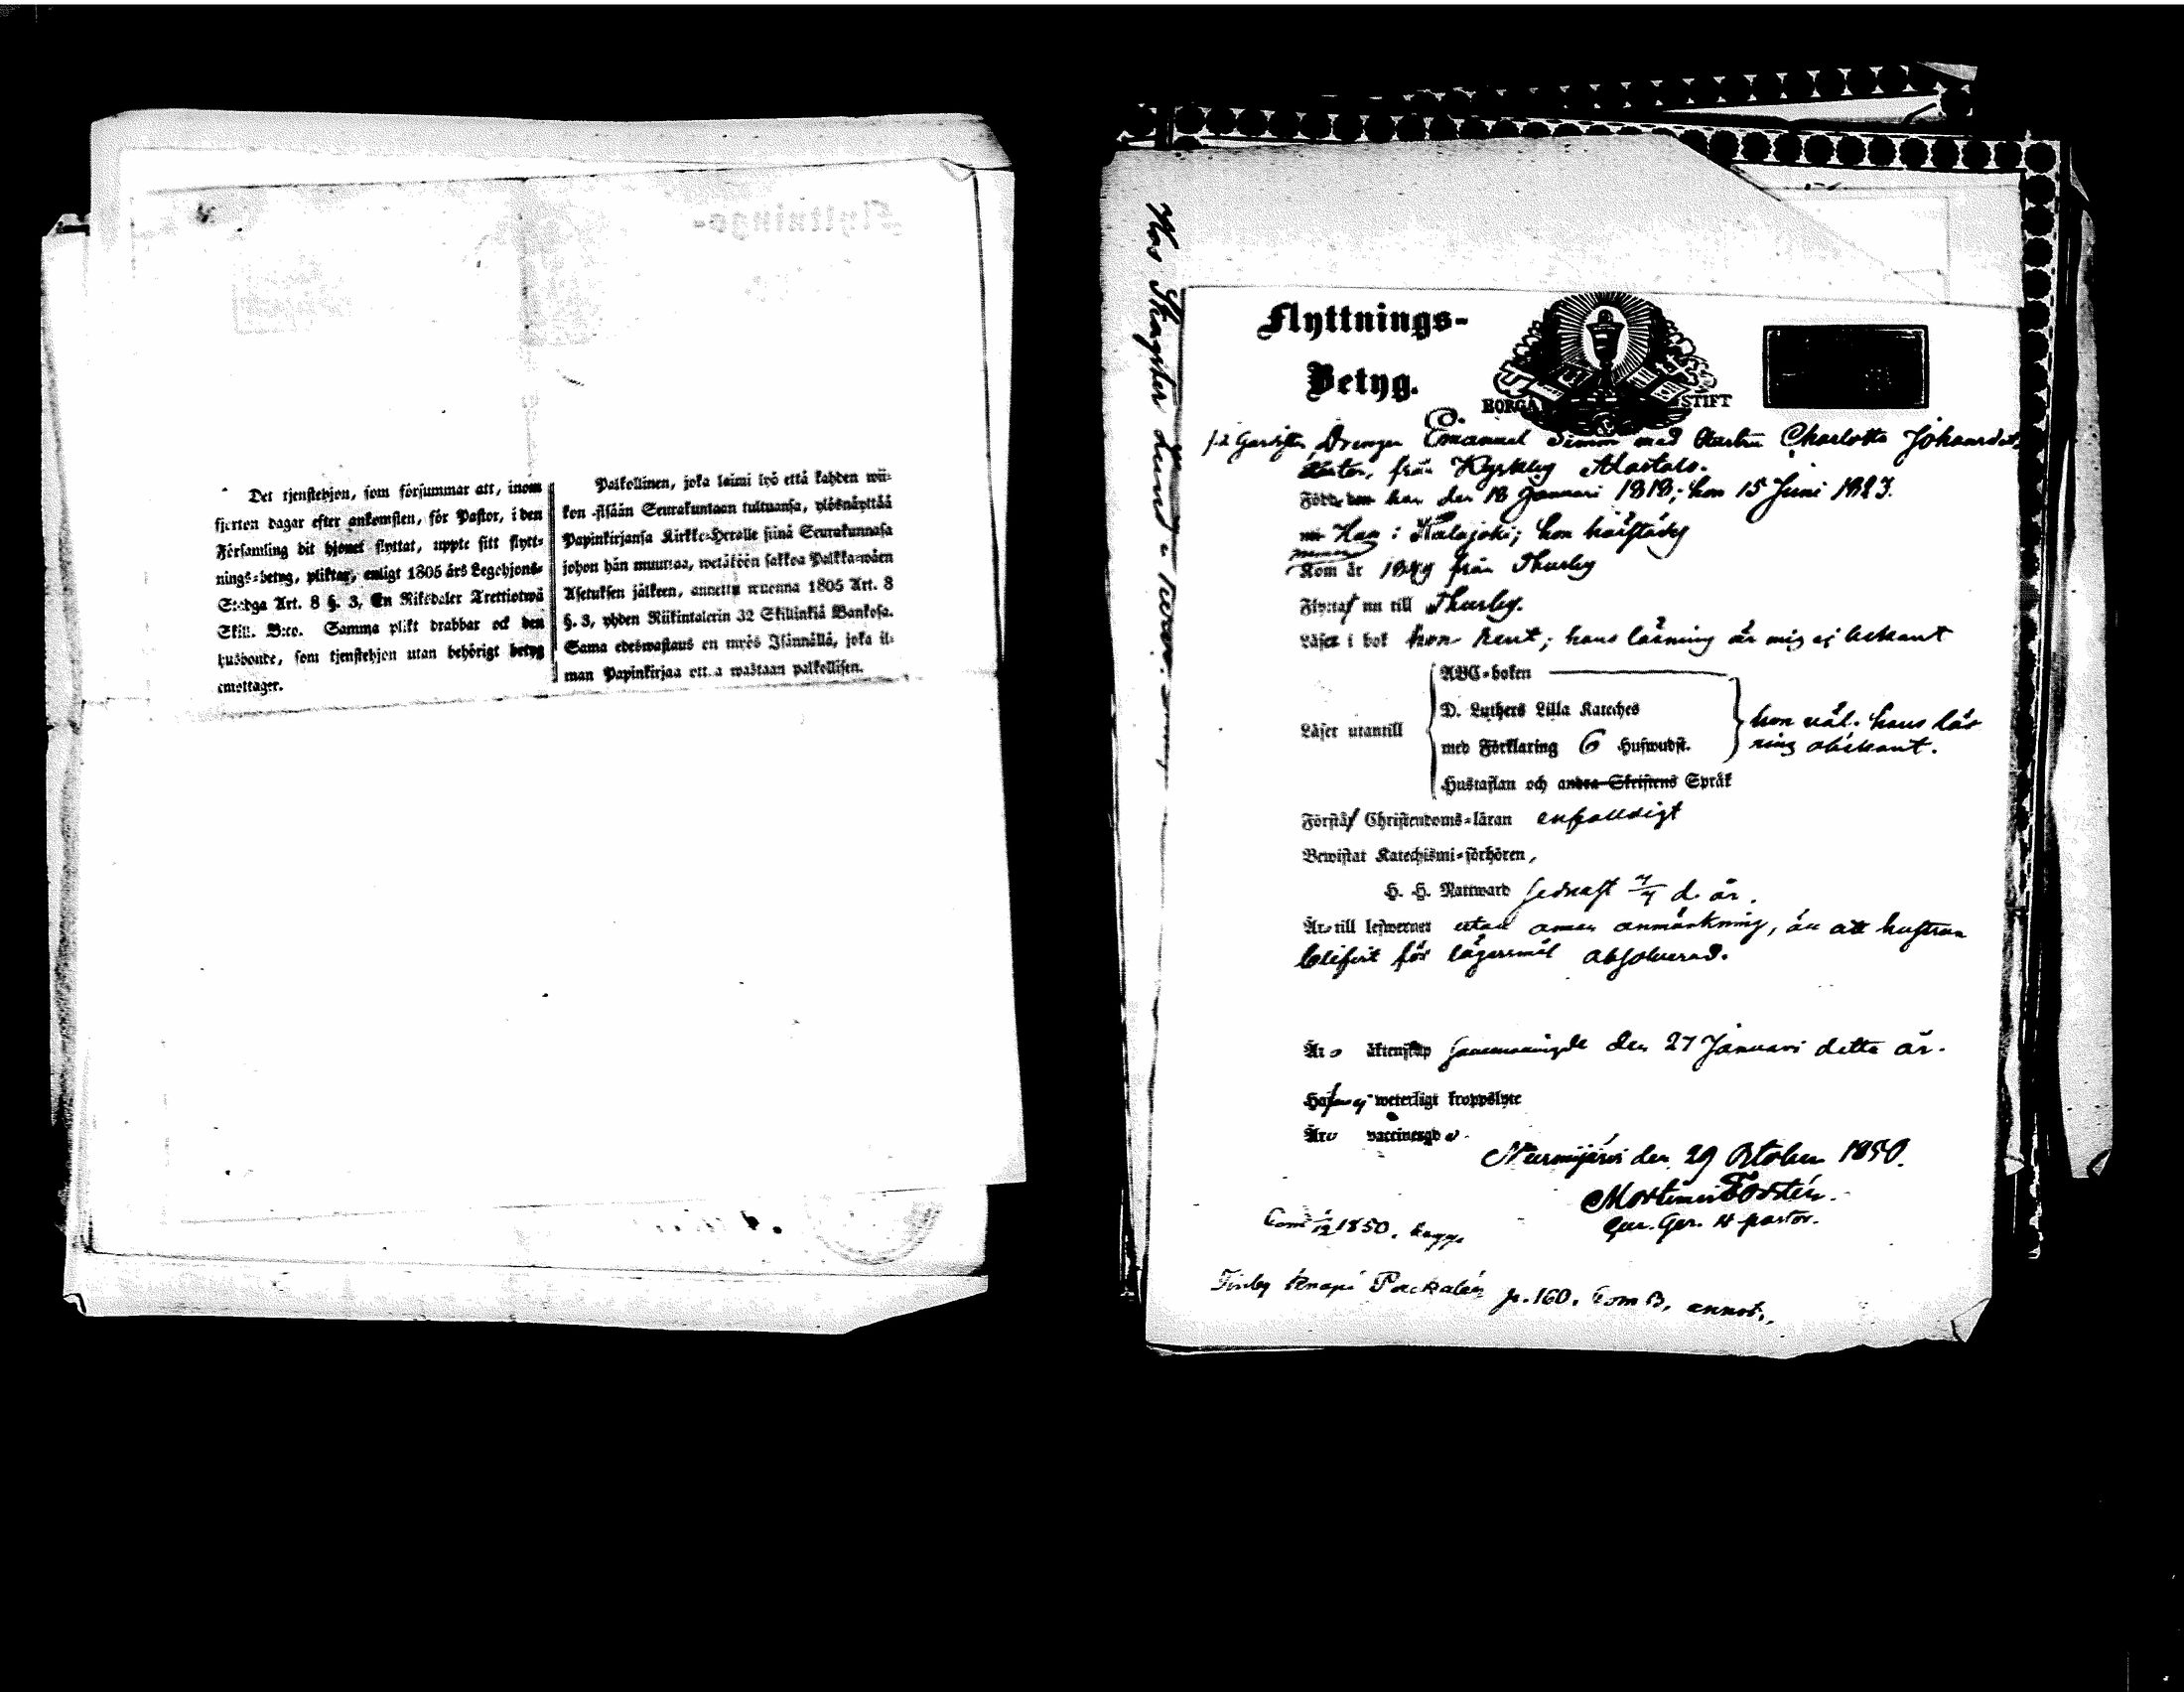 Det tjenstehjon, som försummar att, inom
fjorton dagar efter ankomsten, för Pastor, i den
Församling dit hjonet flyttat, uppte sitt flytt-
nings-betyg, pliktar, enligt 1805 års Legohjons-
Stadga Art. 8 §. 3, En Riksdaler Trettiotwå
Skill. B:co. Samma plikt drabbar ock den
husbonde, som tjenstehjon utan behörigt betyg
emottager.
Palkollinen, joka laimi lyö että kahden wii-
kon sisään Seurakuntaan tultuansa, ylösnäyttää
Papinkirjansa Kirkko-Herralle siinä Seurakunnasa
johon hän muuttaa, wetäköön sakkoa Palkka-wäen
Asetuksen jälkeen, annettu wuonna 1805 Art. 8
§. 3, yhden Riikintalerin 32 Skillinkiä Bankosa.
Sama edeswastaus on myös Isännällä, joka il-
man Papinkirjaa ottaa wastaan palkollisen.
Flyttnings-
Betyg.
BORGÅ STIFT
Drengen Emanuel Simon med Hustru Charlotta Johansd:
dotter, från Kyrkby
Född den han den 18 Januari 1818; hon 15 Juni 1823.
Han i Kalajoki; hon härstädes
Kom år 1849 från Thusby
Flyttar nu till Thusby.
Läser i bok hon rent; hans läsning är mig ej bekant
ABC-boken
D. Luthers Lilla Kateches
Läser utantill
med Förklaring 6 Hufwudst.
hon väl. hans läs
ning obekant.
Hustaflan och andra Skriftens Språk
Förstår Christendoms-läran enfaldigt
Bewistat Katechismi-förhören,
H. H. Nattward sednast d. år.
Äro till lefwernet utan annan anmärkning, än att hustrun
blifvit för lägersmål absolverad.
Äro äktenskap sammanvigde den 27 Januari detta år.
Hafva ej weterligt kroppslyte
Äro vaccinerade.
Nurmijärvi den 29 October 1850.
Mortimer Forstén.
1850.
p. 160. annot.